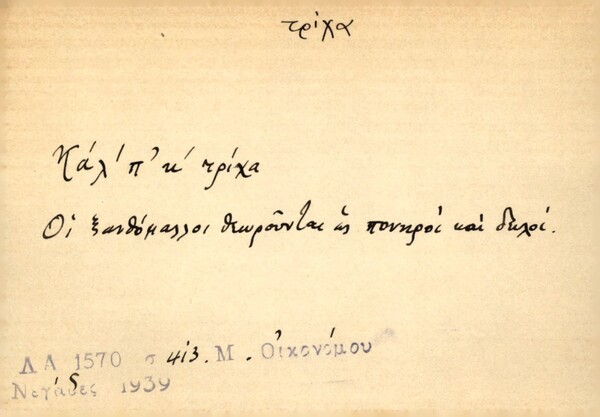 τρίχα
Κάλ' π' κ' τρίχα
Οἱ ξανθόμαλλοι θεωροῦνται ὡς πονηροὶ καὶ δειλοί.
ΛΑ 1570 σ 413. Μ. Οἰκονόμου
Νεγάδες 1939